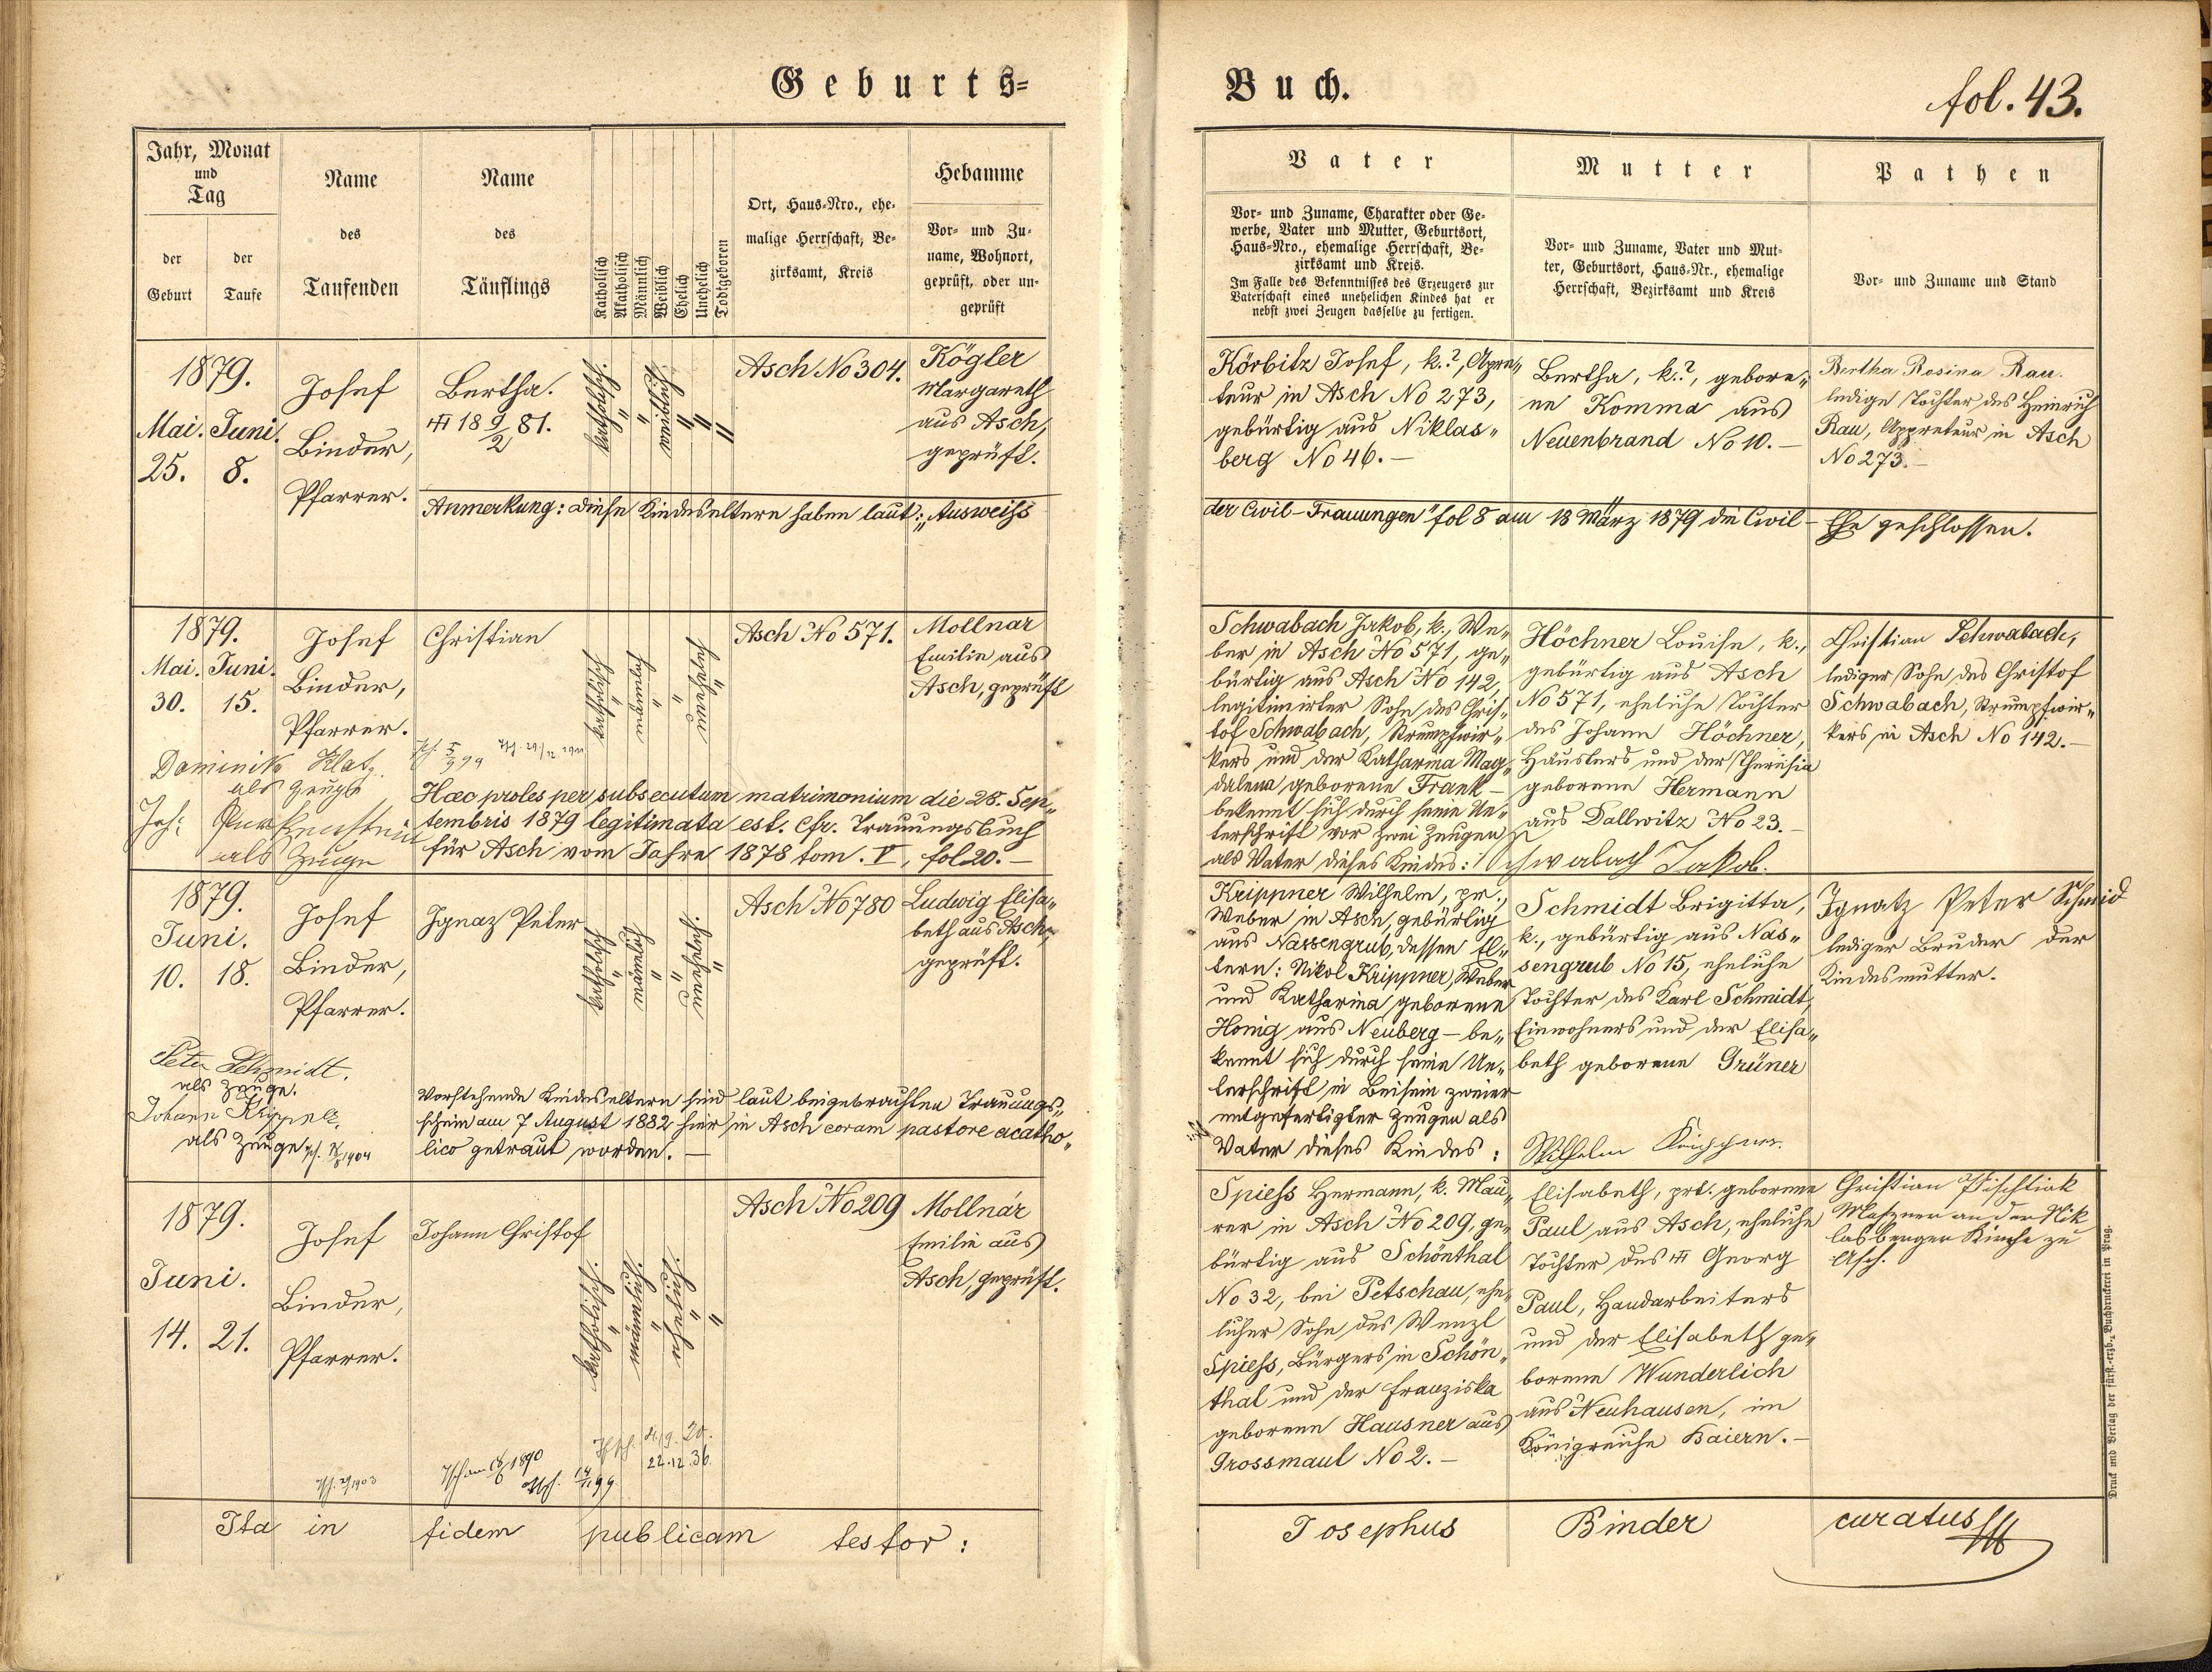 Geburts-
Buch.
fol. 43.
Jahr, Monat
und
Tag
der
Geburt
der
Taufe
Name
des
Taufenden
Name
des
Täuflings
Katholisch
Akatholisch
Männlich
Weiblich
Ehelich
Unehelich
Todtgeboren
Ort, Haus-Nro., ehe-
malige Herrschaft, Be-
zirksamt, Kreis
Hebamme
Vor- und Zu-
name, Wohnort,
geprüft, oder un-
geprüft
Vater
Vor- und Zuname, Charakter oder Ge-
werbe, Vater und Mutter, Geburtsort,
Haus-Nro., ehemalige Herrschaft, Be-
zirksamt und Kreis.
Im Falle des Bekenntnisses des Erzeugers zur
Vaterschaft eines unehelichen Kindes hat er
nebst zwei Zeugen dasselbe zu fertigen.
Mutter
Vor- und Zuname, Vater und Mut-
ter, Geburtsort, Haus-Nr., ehemalige
Herrschaft, Bezirksamt und Kreis
Pathen
Vor- und Zuname und Stand
1879.
Mai. Juni.
25. 8.
Josef
Binder,
Pfarrer.
Bertha.
18 9/2 81.
katholisch.
"
"
weiblich
"
"
"
Asch No 304.
Kögler
Margareth
aus Asch,
geprüft.
Körbitz Josef, k.?, Appre„
teur in Asch No 273,
gebürtig aus Niklas„
berg No 46.—
Bertha, k.?, gebore„
ne Komma aus
Neuenbrand No 10.—
Bertha Rosina Rau.
ledige Tochter des Heinrich
Rau, Appreteur in Asch
No 273.—
Anmerkung: Diese Kindeseltern haben laut: „Ausweiß
der Civil-Trauungen" fol 8 am 18 März 1879 die Civil-Ehe geschlossen.
1879.
Mai. Juni.
30. 15.
Josef
Binder,
Pfarrer.
Christian
katholisch
"
männlich
"
"
unehelich
"
Asch No 571.
Mollnar
Emilie aus
Asch, geprüft
Schwabach Jakob, k., We„
ber in Asch No 571, ge„
bürtig aus Asch No 142,
legitimirter Sohn des Chris„
tof Schwabach, Strumpfwir„
kers und der Katharina Mag„
dalena geborene Frank —
bekennt sich durch seine Un„
terschrift vor zwei Zeugen
als Vater dieses Kindes: Schwabach Jakob.
Höchner Louise, k.,
gebürtig aus Asch
No 571, eheliche Tochter
des Johann Höchner,
Häuslers und der Theresia
geborene Hermann
aus Dallwitz No 23.—
Christian Schwabach,
lediger Sohn des Christof
Schwabach, Strumpfwir„
kers in Asch No 142.—
Dominik Klatz
als Zeuge
Joh:
als Zeuge
Hæc proles per subsecutum matrimonium die 28. Sep„
tembris 1879 legitimata est. Cfr. Trauungsbuch
für Asch vom Jahre 1878 tom. V, fol. 20.—
1879.
Juni.
10. 18.
Josef
Binder,
Pfarrer.
Ignaz Peter
katholisch
"
männlich
"
"
unehelich.
"
Asch No 780
Ludwig Elisa„
beth aus Asch,
geprüft.
Krippner Wilhelm, pr.,
Weber in Asch, gebürtig
aus Nassengrub, dessen El„
tern: Nikol Krippner, Weber
und Katharina geborene
Honig aus Neuberg — be„
kennt sich durch seine Un„
terschrift in Beisein zweier
mitgefertigter Zeugen als
Vater dieses Kindes: Wilhelm Krippner.
Schmidt Brigitta,
k., gebürtig aus Nas„
sengrub No 15, eheliche
Tochter des Karl Schmidt,
Einwohners und der Elisa„
beth geborene Grüner
Ignatz Peter Schmid
lediger Bruder der
Kindesmutter.
Peter Schmidt.
als Zeuge.
Johann
als Zeuge
Vorstehende Kindeseltern sind laut beigebrachten Trauungs„
schein am 7 August 1882 hier in Asch coram pastore acatho„
lico getraut worden.—
1879.
Juni.
14. 21.
Josef
Binder,
Pfarrer.
Johann Christof
katholisch.
"
männlich.
"
ehelich.
"
"
Asch No 209
Mollnár
Emilie aus
Asch, geprüft.
Spieß Hermann, k. Mau„
rer in Asch No 209, ge„
bürtig aus Schönthal
No 32, bei Petschau, ehe„
licher Sohn des Wenzl
Spieß, Bürgers in Schön„
thal und der Franziska
geborene Hausner aus
Grossmaul No 2.—
Elisabeth, prt. geborene
Paul aus Asch, eheliche
Tochter des Georg
Paul, Handarbeiters
und der Elisabeth ge„
borene Wunderlich
aus Neuhausen, im
Königreiche Baiern.—
Christian
Meßner an der Nik
lasberger Kirche zu
Asch.
Ita in fidem publicam testor:
Josephus Binder curatus
Druck und Verlag der fürst.-erzb. Buchdruckerei in Prag.